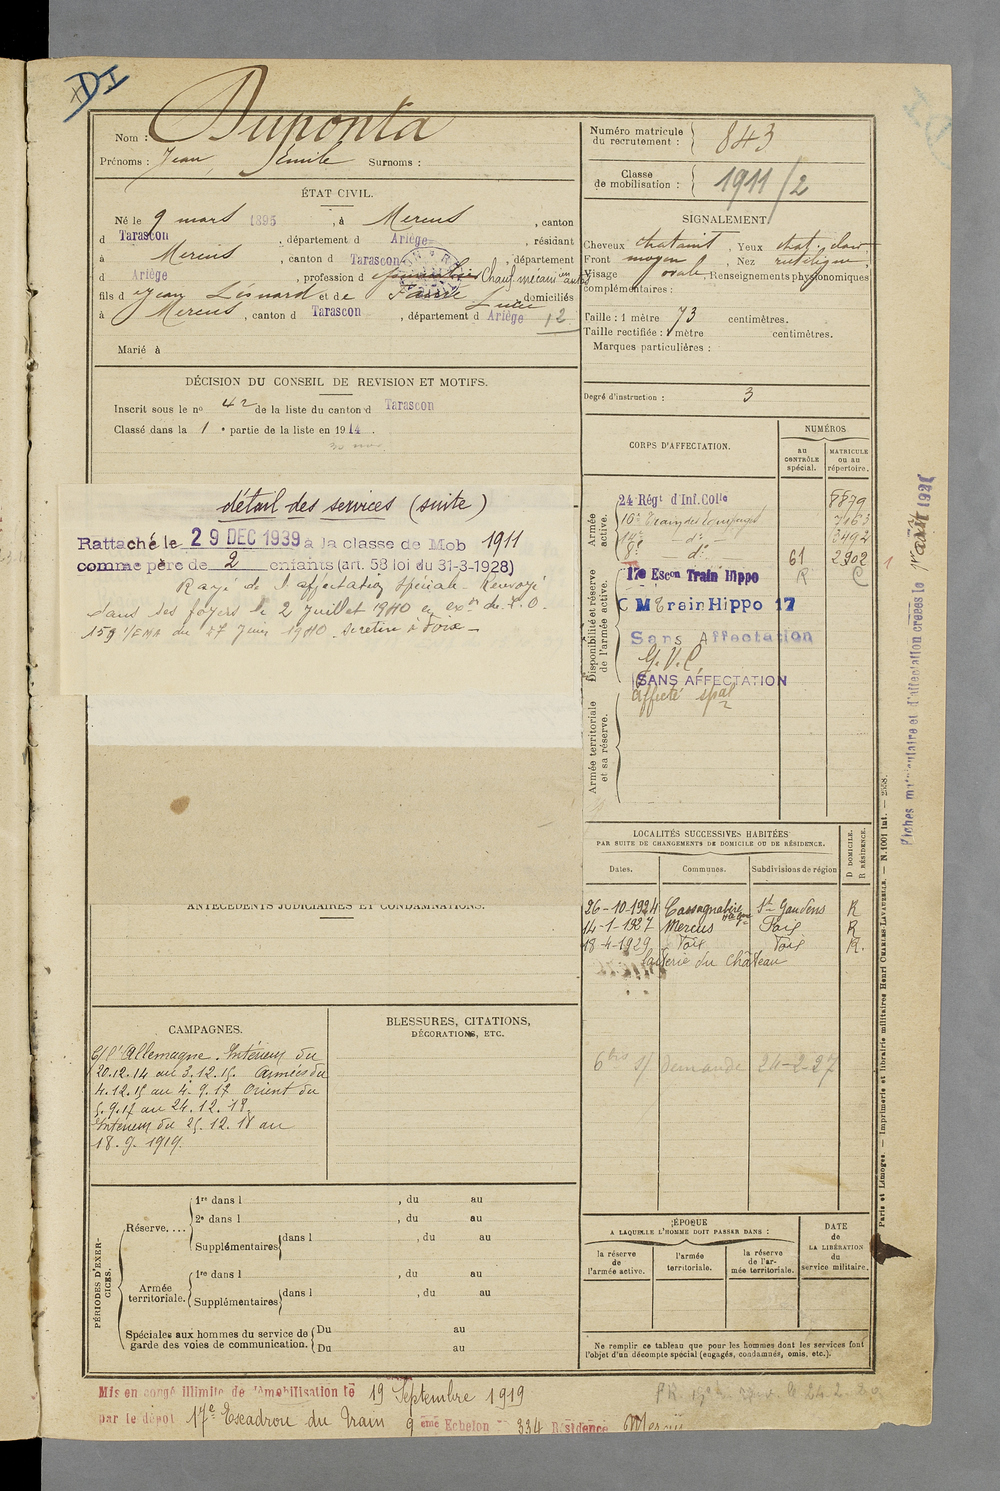 DI
Nom : Duponta
Prénoms : Jean, Émile Surnoms :
ÉTAT CIVIL.
Né le 9 mars 1895, à Mercus, canton
d Tarascon, département d Ariège, résidant
à Mercus, canton d Tarascon, département
d Ariège, profession d Chauf. mécanicien auto
fils d Jean Léonard et de Faure Lucie domiciliés
à Mercus, canton d Tarascon, département d Ariège 12
Marié à
DÉCISION DU CONSEIL DE REVISION ET MOTIFS.
Inscrit sous le no 42 de la liste du canton d Tarascon
Classé dans la 1e partie de la liste en 1914.
détail des services (suite)
Rattaché le 29 DEC 1939 à la classe de Mob 1911
comme père de 2 enfants (art. 58 loi du 31-3-1928)
Rayé de l'affectation spéciale. Renvoyé
dans ses foyers le 2 juillet 1940 en exon de
159 1/EMA du 27 Juin 1940. Se retire à Foix
ANTÉCÉDENTS JUDICIAIRES ET CONDAMNATIONS.
CAMPAGNES.
C/ l'Allemagne. Intérieur du
20.12.14 au 3.12.15. Armées du
4.12.15 au 4.9.17 Orient du
5.9.17 au 24.12.18.
Intérieur du 25.12.18 au
18.9.1919.
BLESSURES, CITATIONS,
DÉCORATIONS, ETC.
PÉRIODES D'EXERCICES.
Réserve....
1re dans l , du au
2e dans l , du au
Supplémentaires dans l , du au
Armée territoriale.
1re dans l , du au
Supplémentaires dans l , du au
Spéciales aux hommes du service de garde des voies de communication.
Du au
Du au
Mis en congé illimité de démobilisation le 19 Septembre 1919
par le dépôt 17e Escadron du Train 9 eme Echelon 334 Résidence Mercus
Numéro matricule du recrutement : 843
Classe de mobilisation : 1911/2
SIGNALEMENT
Cheveux chataint, Yeux chat. clair
Front moyen, Nez rectiligne,
Visage ovale, Renseignements physionomiques
complémentaires :
Taille : 1 mètre 73 centimètres.
Taille rectifiée : 1 mètre centimètres.
Marques particulières :
Degré d'instruction : 3
CORPS D'AFFECTATION.
NUMÉROS
au CONTRÔLE spécial.
MATRICULE ou au répertoire.
Armée active.
24 Régt d'Inf. Colle 8879
10e Train des Equipages 7163
14e do 3492
8e do 61 2902
R C
Disponibilité et réserve de l'armée active.
17e Escon Train Hippo
C M Train Hippo 17
Sans Affectation
G.V.C.
SANS AFFECTATION
Affecté spal
Armée territoriale et sa réserve.
LOCALITÉS SUCCESSIVES HABITÉES
PAR SUITE DE CHANGEMENTS DE DOMICILE OU DE RÉSIDENCE.
Dates. Communes. Subdivisions de région
D DOMICILE. R RÉSIDENCE.
26-10-1924 Cassagnabère St Gaudens R
14-1-1927 Mercus Foix R
18-4-1929 Foix Foix R.
laiterie du Château
6 bis s/ demande 24-2-27
ÉPOQUE
A LAQUELLE L'HOMME DOIT PASSER DANS :
la réserve de l'armée active.
l'armée territoriale.
la réserve de l'armée territoriale.
DATE de LA LIBÉRATION du service militaire.
Ne remplir ce tableau que pour les hommes dont les services font
l'objet d'un décompte spécial (engagés, condamnés, omis, etc.).
Paris et Limoges. — Imprimerie et librairie militaires Henri CHARLES-LAVAUZELLE. — N. 1001 Int. — 2558.
1
Fiches matriculaire et d'affectation créées le 1er août